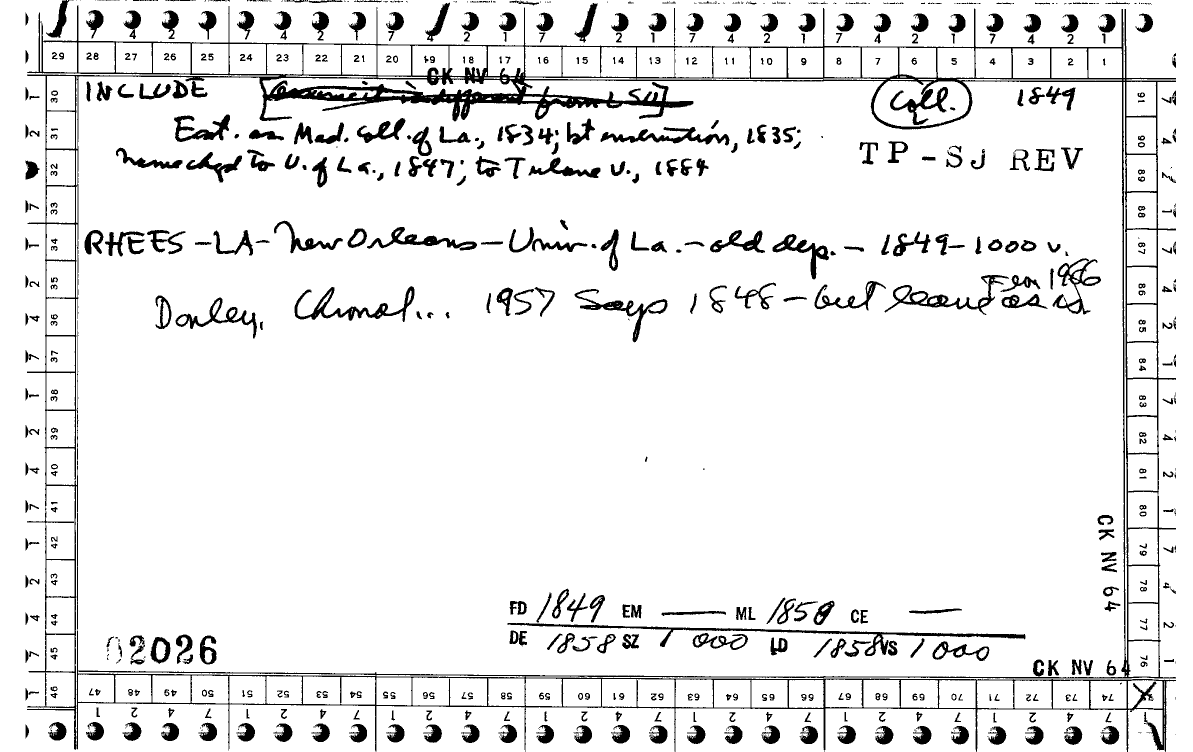 7 4 2 1 7 4 2 1 7 4 2 1 7 4 2 1 7 4 2 1 7 4 2 1 7 4 2 1
29 28 27 26 25 24 23 22 21 20 19 18 17 16 15 14 13 12 11 10 9 8 7 6 5 4 3 2 1
CK NV 64
INCLUDE [assumed is different from LSU] Coll. 1849
Est. as Med. Coll. of La., 1834; 1st instruction, 1835;
name chgd to U. of La., 1847; to Tulane U., 1884
TP-SJ REV
RHEES-LA-New Orleans-Univ. of La.-old dep.-1849-1000 v.
Jem 1966
Donley, Chronol... 1957 says 1848-but leave as is.
30 31 32 33 34 35 36 37 38 39 40 41 42 43 44 45 46
91 90 89 88 87 86 85 84 83 82 81 80 79 78 77 76
CK NV 64
FD 1849 EM — ML 1858 CE —
DE 1858 SZ 1 000 LD 1858 VS 1 000
02026
CK NV 64
47 48 49 50 51 52 53 54 55 56 57 58 59 60 61 62 63 64 65 66 67 68 69 70 71 72 73 74 75
1 2 4 7 1 2 4 7 1 2 4 7 1 2 4 7 1 2 4 7 1 2 4 7 1 2 4 7 1